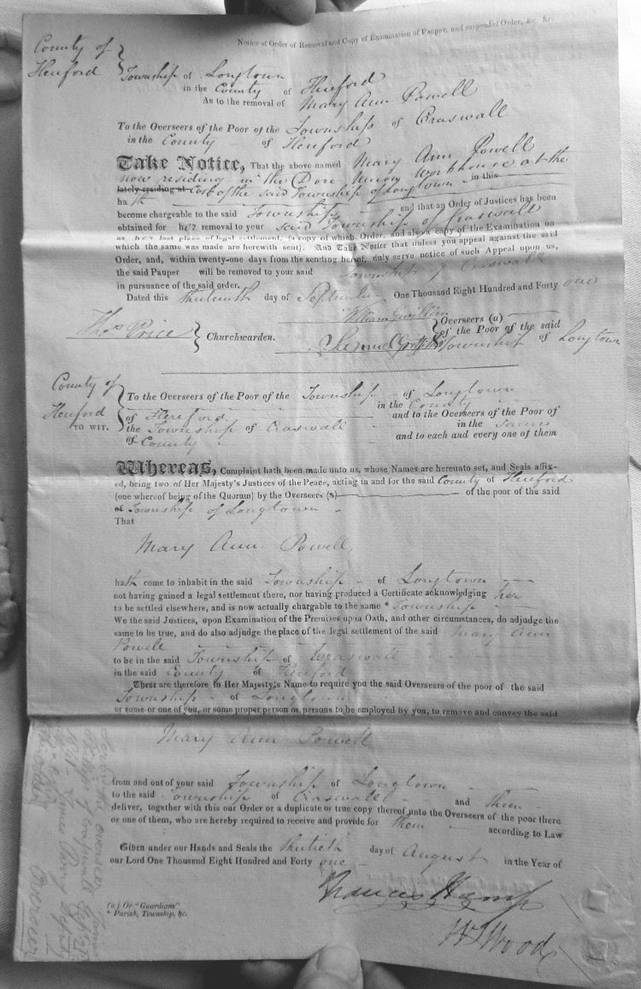 Notice of Order of Removal and Copy of Examination of Pauper, and suspended Order, &c. &c.
County of
Hereford
Township of Longtown
in the County of Hereford
As to the removal of Mary Ann Powell
To the Overseers of the Poor of the Township of Craswall
in the County of Hereford
Take Notice, That the above named Mary Ann Powell
now residing in the Dore Union Workhouse at the
lately residing at Cost of the said Township of Longtown in this
hath
become chargeable to the said Township and that an Order of Justices has been
obtained for her removal to your said Township of Craswall
as her last place of legal settlement, (a copy of which Order, and also a copy of the Examination on
which the same was made are herewith sent). And Take Notice that unless you appeal against the said
Order, and, within twenty-one days from the sending hereof, duly serve notice of such Appeal upon us,
the said Pauper will be removed to your said Township of Craswall
in pursuance of the said order.
Dated this thirteenth day of September One Thousand Eight Hundred and Forty one
Thos Price Churchwarden.
William
Overseers (a)
of the Poor of the said
Township of Longtown
County of
Hereford
TO WIT.
To the Overseers of the Poor of the Township of Longtown
in the County
of Hereford and to the Overseers of the Poor of
the Township of Craswall in the same
of County and to each and every one of them
Whereas, Complaint hath been made unto us, whose Names are hereunto set, and Seals affix-
ed, being two of Her Majesty's Justices of the Peace, acting in and for the said County of Hereford
(one whereof being of the Quorum) by the Overseers (a) of the poor of the said
Township of Longtown
That
Mary Ann Powell
hath come to inhabit in the said Township of Longtown
not having gained a legal settlement there, nor having produced a Certificate acknowledging her
to be settled elsewhere, and is now actually chargable to the same * Township
We the said Justices, upon Examination of the Premises upon Oath, and other circumstances, do adjudge the
same to be true, and do also adjudge the place of the legal settlement of the said Mary Ann
Powell
to be in the said Township of Craswall
in the said County of Hereford
These are therefore in Her Majesty's Name to require you the said Overseers of the poor of the said
Township of Longtown
or some or one of you, or some proper person or persons to be employed by you, to remove and convey the said
Mary Ann Powell
from and out of your said Township of Longtown
to the said Township of Craswall and them
deliver, together with this our Order or a duplicate or true copy thereof unto the Overseers of the poor there
or one of them, who are hereby required to receive and provide for them according to Law
Given under our Hands and Seals the thirtieth day of August in the Year of
our Lord One Thousand Eight Hundred and Forty one
(a) Or "Guardians"
* Parish, Township, &c.
Wood